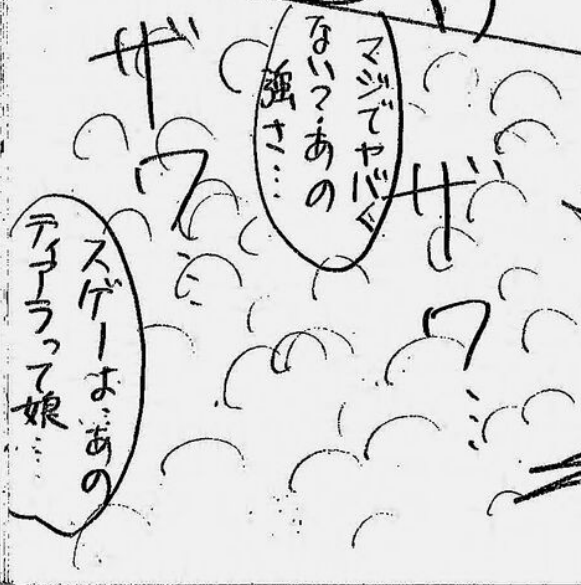 マジでヤバく
ない？あの
強さ…
ザワ…
ザワ…
スゲーよ…あの
ティアラって娘…